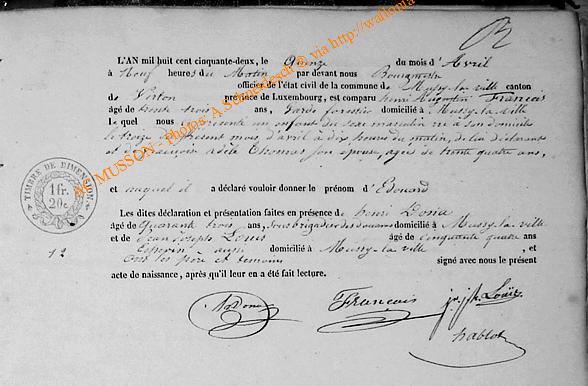 L'AN mil huit cent cinquante-deux, le Quinze du mois d'Avril
à Neuf heures du Matin par devant nous Bourgmestre
officier de l'état civil de la commune de Mussy-la-ville canton
de Virton province de Luxembourg, est comparu henri Augustin Francois
âgé de trente trois ans, Garde forestier domicilié à Mussy-la-ville
Le quel nous a présenté un enfant du sexe masculin né à son domicile
le treize du présent mois, d'avril à dix heures du matin, de lui déclarant
et de françoise Adèle Thomas son épouse, agée de trente quatre ans,
et auquel il a déclaré vouloir donner le prénom d'Edouard
Les dites déclaration et présentation faites en présence de henri
âgé de Quarante trois ans, sous brigadier des douanes domicilié à Mussy-la-ville
et de Jean Joseph Louis âgé de cinquante quatre ans
domicilié à Mussy-la-ville, et
ont les père et témoins signé avec nous le présent
acte de naissance, après qu'il leur en a été fait lecture.
Francois
j. jh. Louis
TIMBRE DE DIMENSION
1 fr.
20 c.
12
MUSSON - Photos: A Schrodesch © via http://wallonia